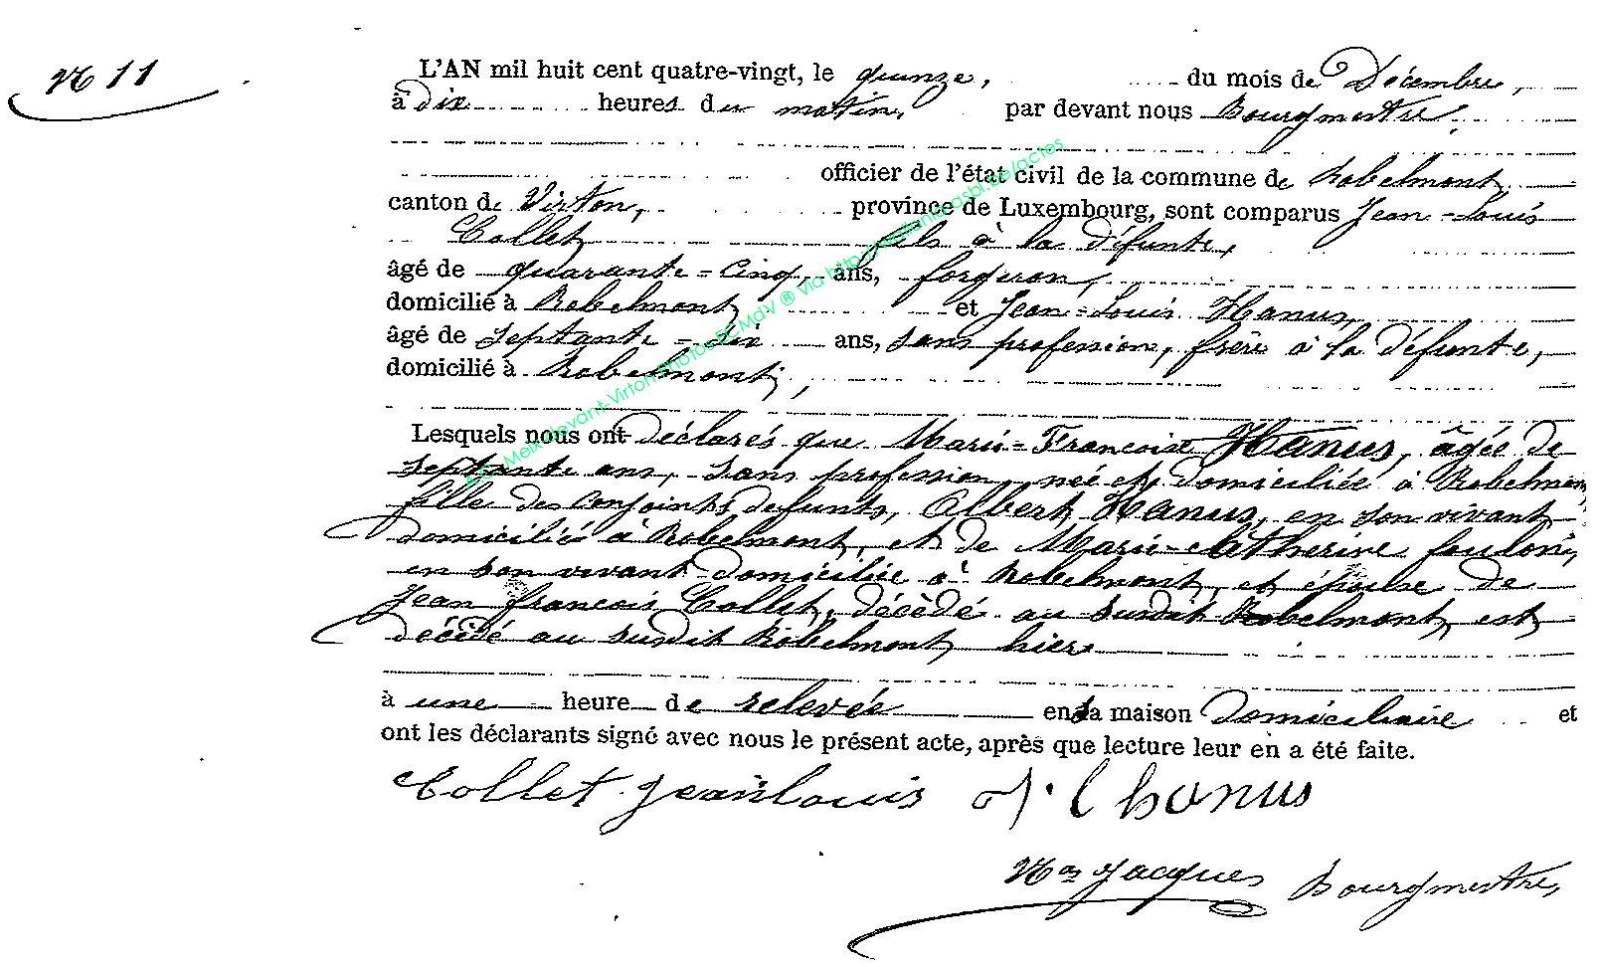 N° 11
L'AN mil huit cent quatre-vingt, le quinze, du mois de Décembre,
à dix heures du matin, par devant nous Bourgmestre,
officier de l'état civil de la commune de Robelmont,
canton de Virton, province de Luxembourg, sont comparus Jean-Louis
Collet fils à la défunte,
âgé de quarante-cinq, ans, forgeron,
domicilié à Robelmont et Jean-Louis Hanus,
âgé de septante-dix ans, sans profession, frère à la défunte,
domicilié à Robelmont,
Lesquels nous ont déclarés que Marie-Francoise Hanus, âgée de
septante ans, sans profession, née et domiciliée à Robelmont
fille des conjoints defunts, Albert Hanus, en son vivant
domicilié à Robelmont, et de Marie-Catherine foulon,
en son vivant domiciliée à Robelmont, et épouse de
Jean françois Collet, décèdé au susdit Robelmont, est
décédé au susdit Robelmont hier
à une heure de relevée en sa maison Domiciliaire et
ont les déclarants signé avec nous le présent acte, après que lecture leur en a été faite.
Collet Jean louis J. l hanus
Jacques Bourgmestre,